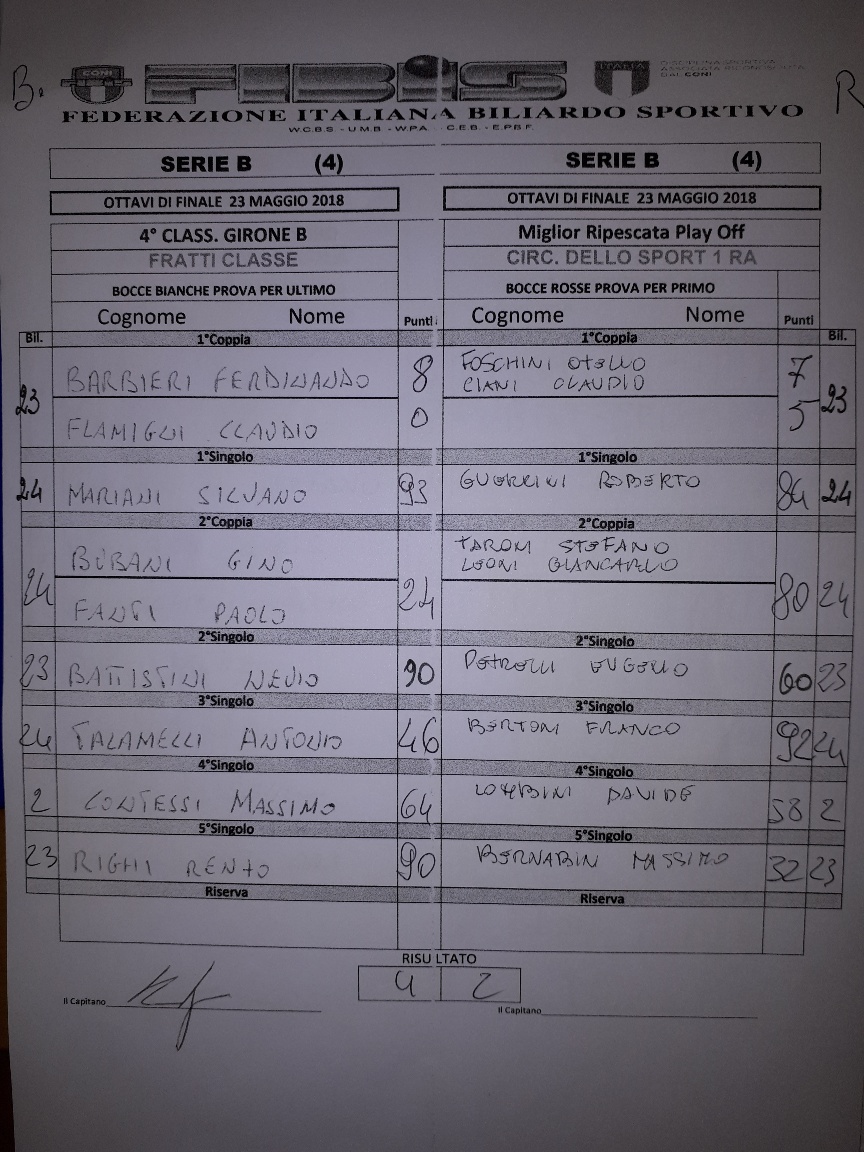 B. CONI FIBIS ITALIA DISCIPLINA SPORTIVA R
ASSOCIATA RICONOSCIUTA
DAL CONI
FEDERAZIONE ITALIANA BILIARDO SPORTIVO
W.C.B.S - U.M.B - W.P.A. - C.E.B - E.P.B.F.
SERIE B (4) SERIE B (4)
OTTAVI DI FINALE 23 MAGGIO 2018 OTTAVI DI FINALE 23 MAGGIO 2018
4° CLASS. GIRONE B Miglior Ripescata Play Off
FRATTI CLASSE CIRC. DELLO SPORT 1 RA
BOCCE BIANCHE PROVA PER ULTIMO BOCCE ROSSE PROVA PER PRIMO
Cognome Nome Punti Cognome Nome Punti
Bil. 1°Coppia 1°Coppia Bil.
23 BARBIERI FERDINANDO 8 FOSCHINI OTELLO 7 23
CIANI CLAUDIO
FLAMIGNI CLAUDIO 0 5
1°Singolo 1°Singolo
24 MARIANI SILVANO 93 GUERRINI ROBERTO 84 24
2°Coppia 2°Coppia
24 BUBANI GINO 24 TARONI STEFANO 80 24
LEONI GIANCARLO
FANTI PAOLO
2°Singolo 2°Singolo
23 BATTISTINI NEVIO 90 PETROLLI EUGENIO 60 23
3°Singolo 3°Singolo
24 TALAMELLI ANTONIO 46 BERTONI FRANCO 92 24
4°Singolo 4°Singolo
2 CONTESSI MASSIMO 64 LOMBINI DAVIDE 58 2
5°Singolo 5°Singolo
23 RIGHI RENATO 90 BERNABINI MASSIMO 32 23
Riserva Riserva
RISULTATO
4 2
Il Capitano Il Capitano